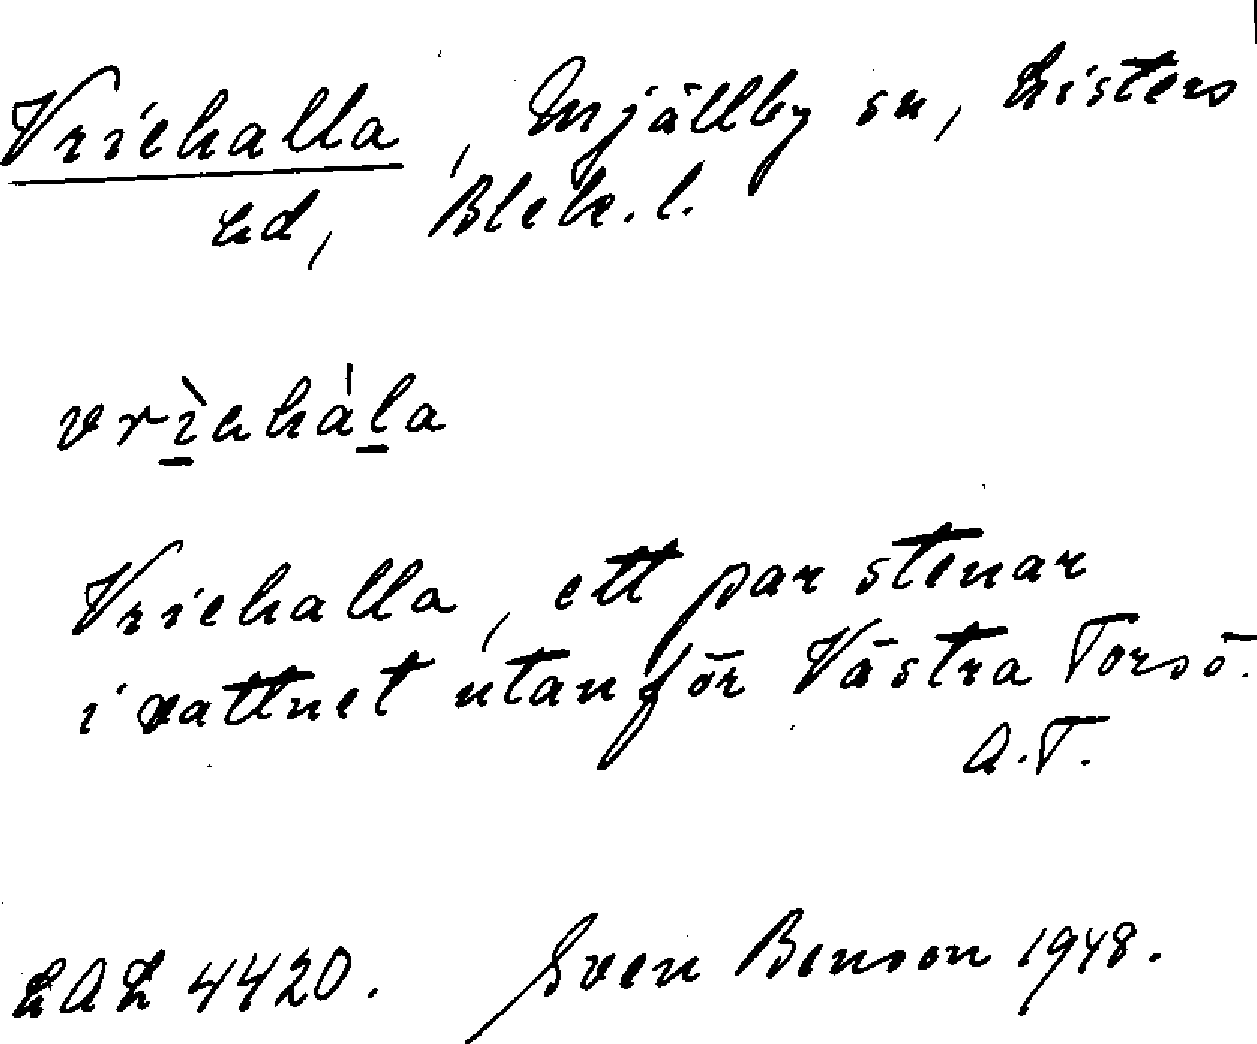 Vriehalla, Mjällby sn, Listers
hd, Blek. l.
vrìəhála
Vriehalla, ett par stenar
i vattnet utanför Västra Torsö.
A.T.
LAL 4420. Sven Benson 1948.